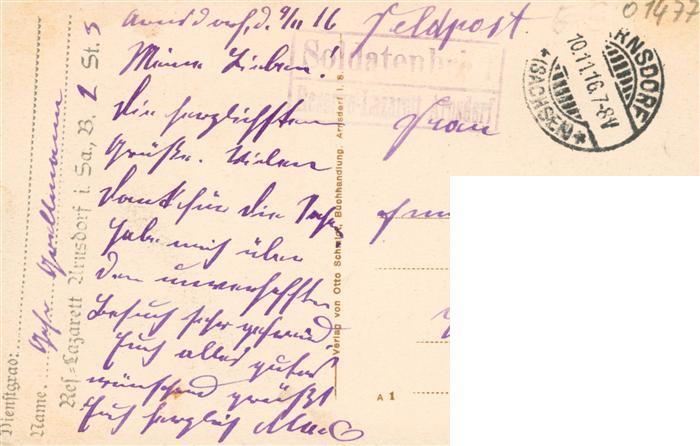 Arnsdorf, d. 9/11 16
Meine Lieben!
Die herzlichsten
Grüße. Vielen
Dank für die
habe mich über
den unverhofften
Besuch sehr gefreut.
Euch alles gutes
wünschend grüßt
Euch herzlich Max
Feldpost
Frau
01472
Soldatenbrief
Reserve-Lazarett Arnsdorf
ARNSDORF
10.11.16.7-8V
*(SACHSEN)*
Verlag von Otto Schmidt, Buchhandlung, Arnsdorf i. S.
A 1
Dienstgrad:
Name.
Res-Lazarett Arnsdorf i. Sa., B. 2 St. 5